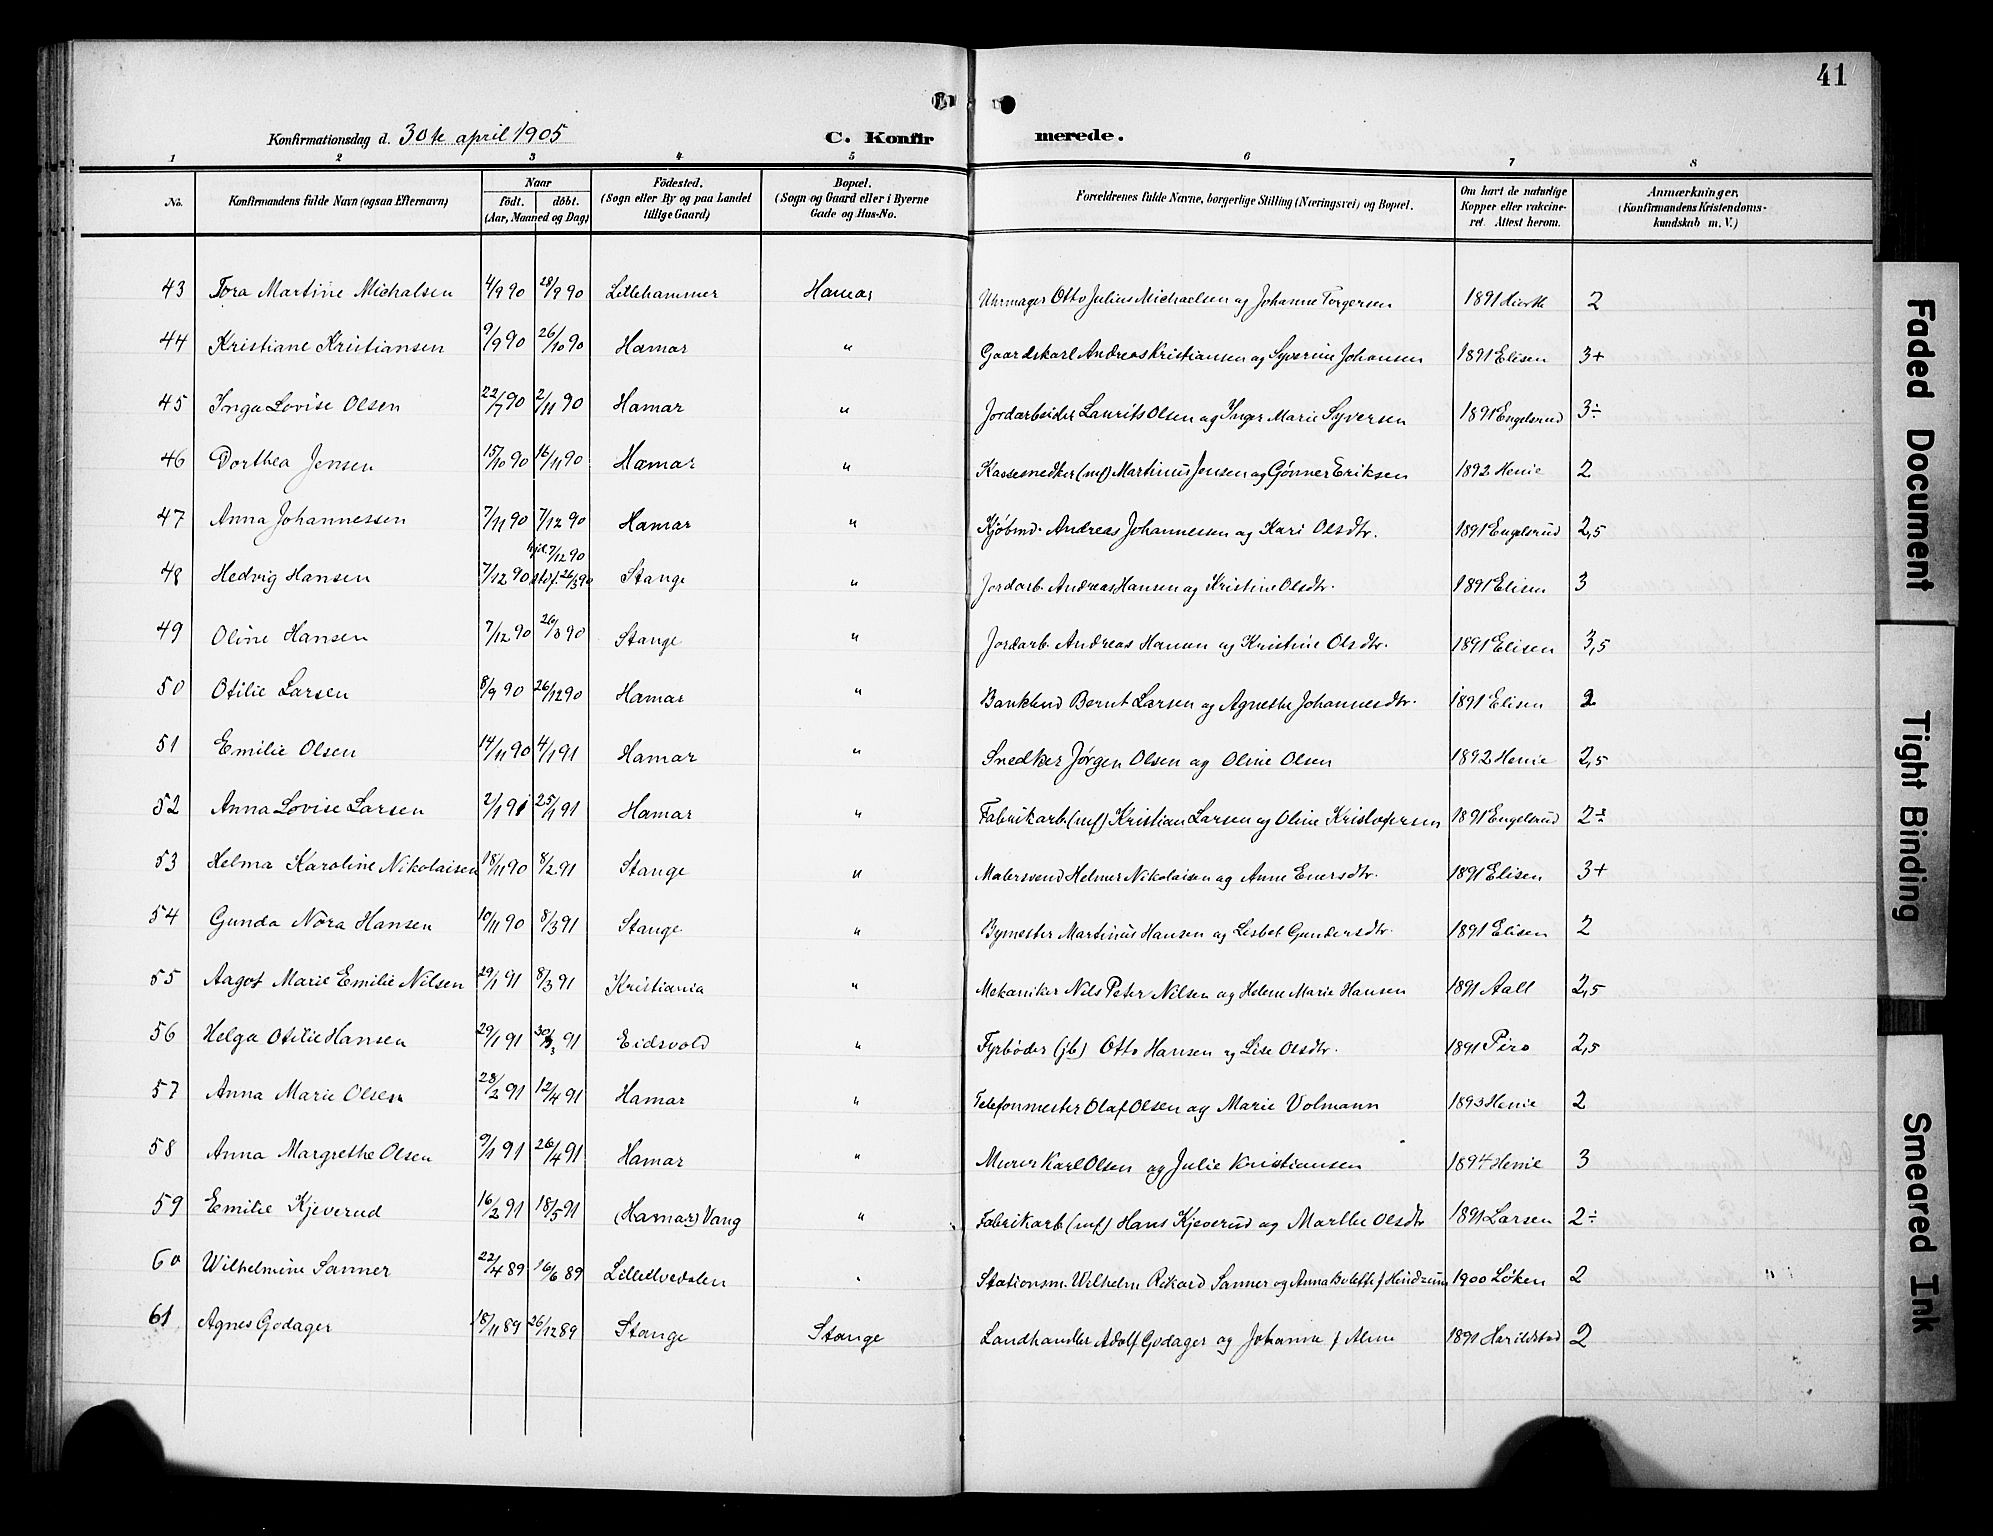 41
Konfirmationsdag d. 30te april 1905 C. Konfirmerede.
1 2 3 4 5 6 7 8
No. Konfirmandens fulde Navn (ogsaa Efternavn) Naar født. døbt. (Aar, Maaned og Dag) Fødested. (Sogn eller By og paa Landet tillige Gaard) Bopæl. (Sogn og Gaard eller i Byerne Gade og Hus-No. Forældrenes fulde Navne, borgerlige Stilling (Næringsvei) og Bopæl. Om havt de naturlige Kopper eller vakcineret. Attest herom. Anmærkninger. (Konfirmandens Kristendomskundskab m. V.)
43 Tora Martine Michalsen 4/9 90 28/9 90 Lillehammer Hamar Uhrmager Otto Julius Michaelsen og Johanne Torgersen 1891 Hiorth 2
44 Kristiane Kristiansen 9/9 90 26/10 90 Hamar " Gaardskarl Andreas Kristiansen og Syverine Johansen 1891 Elisen 3+
45 Inga Lovise Olsen 22/7 90 2/11 90 Hamar " Jordarbeider Laurits Olsen og Inger Marie Syversen 1891 Engelsrud 3÷
46 Dorthea Jensen 15/10 90 16/11 90 Hamar " Kassesnedker (mf) Martinus Jensen og Gønner Eriksen 1892 Henie 2
47 Anna Johannessen 7/11 90 7/12 90 Hamar " Kjøbmd. Andreas Johannessen og Kari Olsdtr. 1891 Engelsrud 2,5
48 Hedvig Hansen 7/12 90 hjd. 7/12 90 stdf. 26/3 90 Stange " Jordarb. Andreas Hansen og Kristine Olsdtr. 1891 Elisen 3
49 Oline Hansen 7/12 90 26/3 90 Stange " Jordarb. Andreas Hansen og Kristine Olsdtr. 1891 Elisen 3,5
50 Otilie Larsen 8/9 90 26/12 90 Hamar " Bankbud Bernt Larsen og Agnethe Johannesdtr. 1891 Elisen 2
51 Emilie Olsen 14/11 90 4/1 91 Hamar " Snedker Jørgen Olsen og Oline Olsen 1892 Henie 2,5
52 Anna Lovise Larsen 2/1 91 25/1 91 Hamar " Fabrikarb. (mf) Kristian Larsen og Oline Kristofersen 1891 Engelsrud 2÷
53 Helma Karoline Nikolaisen 18/11 90 8/2 91 Stange " Malersvend Helmer Nikolaisen og Anne Enersdtr. 1891 Elisen 3+
54 Gunda Nora Hansen 10/11 90 8/3 91 Stange " Bymester Martinus Hansen og Lisbet Gundersdtr. 1891 Elisen 2
55 Aagot Marie Emilie Nilsen 29/1 91 8/3 91 Kristiania " Mekaniker Nils Peter Nilsen og Helene Marie Hansen 1891 Aall 2,5
56 Helga Otilie Hansen 29/1 91 30/3 91 Eidsvold " Fyrbøder (jb) Otto Hansen og Lise Olsdtr. 1891 Piro 2,5
57 Anna Marie Olsen 28/2 91 12/4 91 Hamar " Telefonmester Olaf Olsen og Marie Volmann 1893 Henie 2
58 Anna Margrethe Olsen 9/1 91 26/4 91 Hamar " Murer Karl Olsen og Julie Kristiansen 1894 Henie 3
59 Emilie Kjeverud 16/2 91 18/5 91 (Hamar) Vang " Fabrikarb (mf) Hans Kjeverud og Marthe Olsdtr 1891 Larsen 2÷
60 Wilhelmine Sanner 22/4 89 16/6 89 Lilleelvedalen " Stationsm. Wilhelm Rikard Sanner og Anna Bolette f 1900 Løken 2
61 Agnes Godager 18/11 89 26/12 89 Stange Stange Landhandler Adolf Godager og Johanne f Alme 1891 Harildstad 2
Faded Document
Tight Binding
Smeared Ink